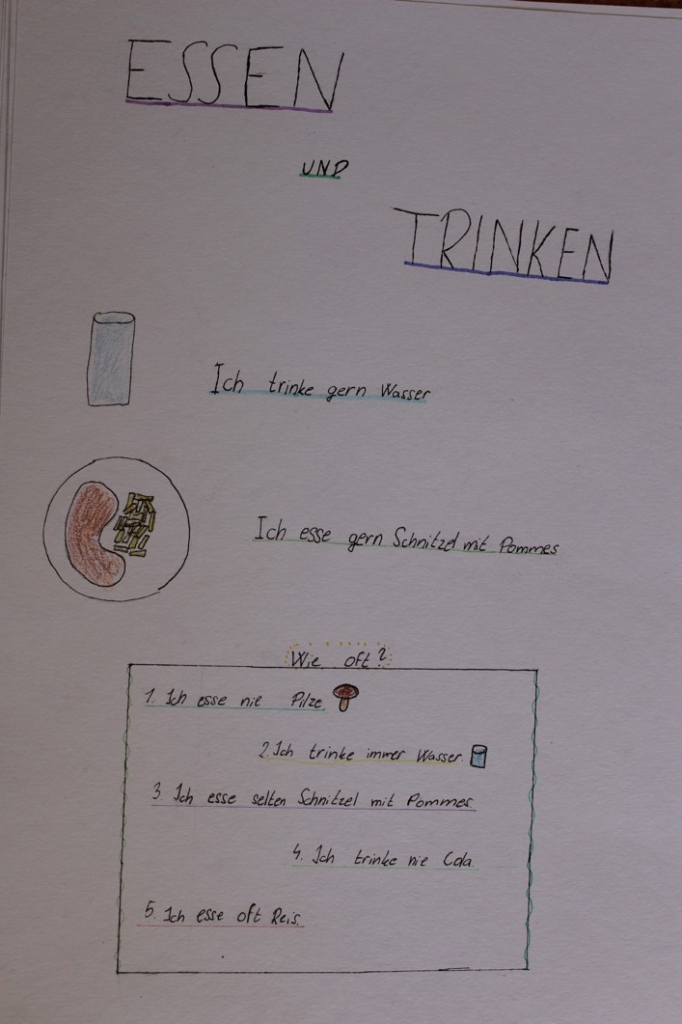 ESSEN
UND
TRINKEN
Ich trinke gern Wasser
Ich esse gern Schnitzel mit Pommes
Wie oft?
1. Ich esse nie Pilze
2. Ich trinke immer Wasser.
3. Ich esse selten Schnitzel mit Pommes
4. Ich trinke nie Cola
5. Ich esse oft Reis.